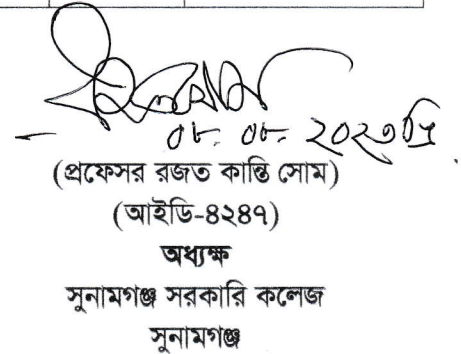 ০৮. ০৮. ২০২৩খ্রি
(প্রফেসর রজত কান্তি সোম)
(আইডি-৪২৪৭)
অধ্যক্ষ
সুনামগঞ্জ সরকারি কলেজ
সুনামগঞ্জ